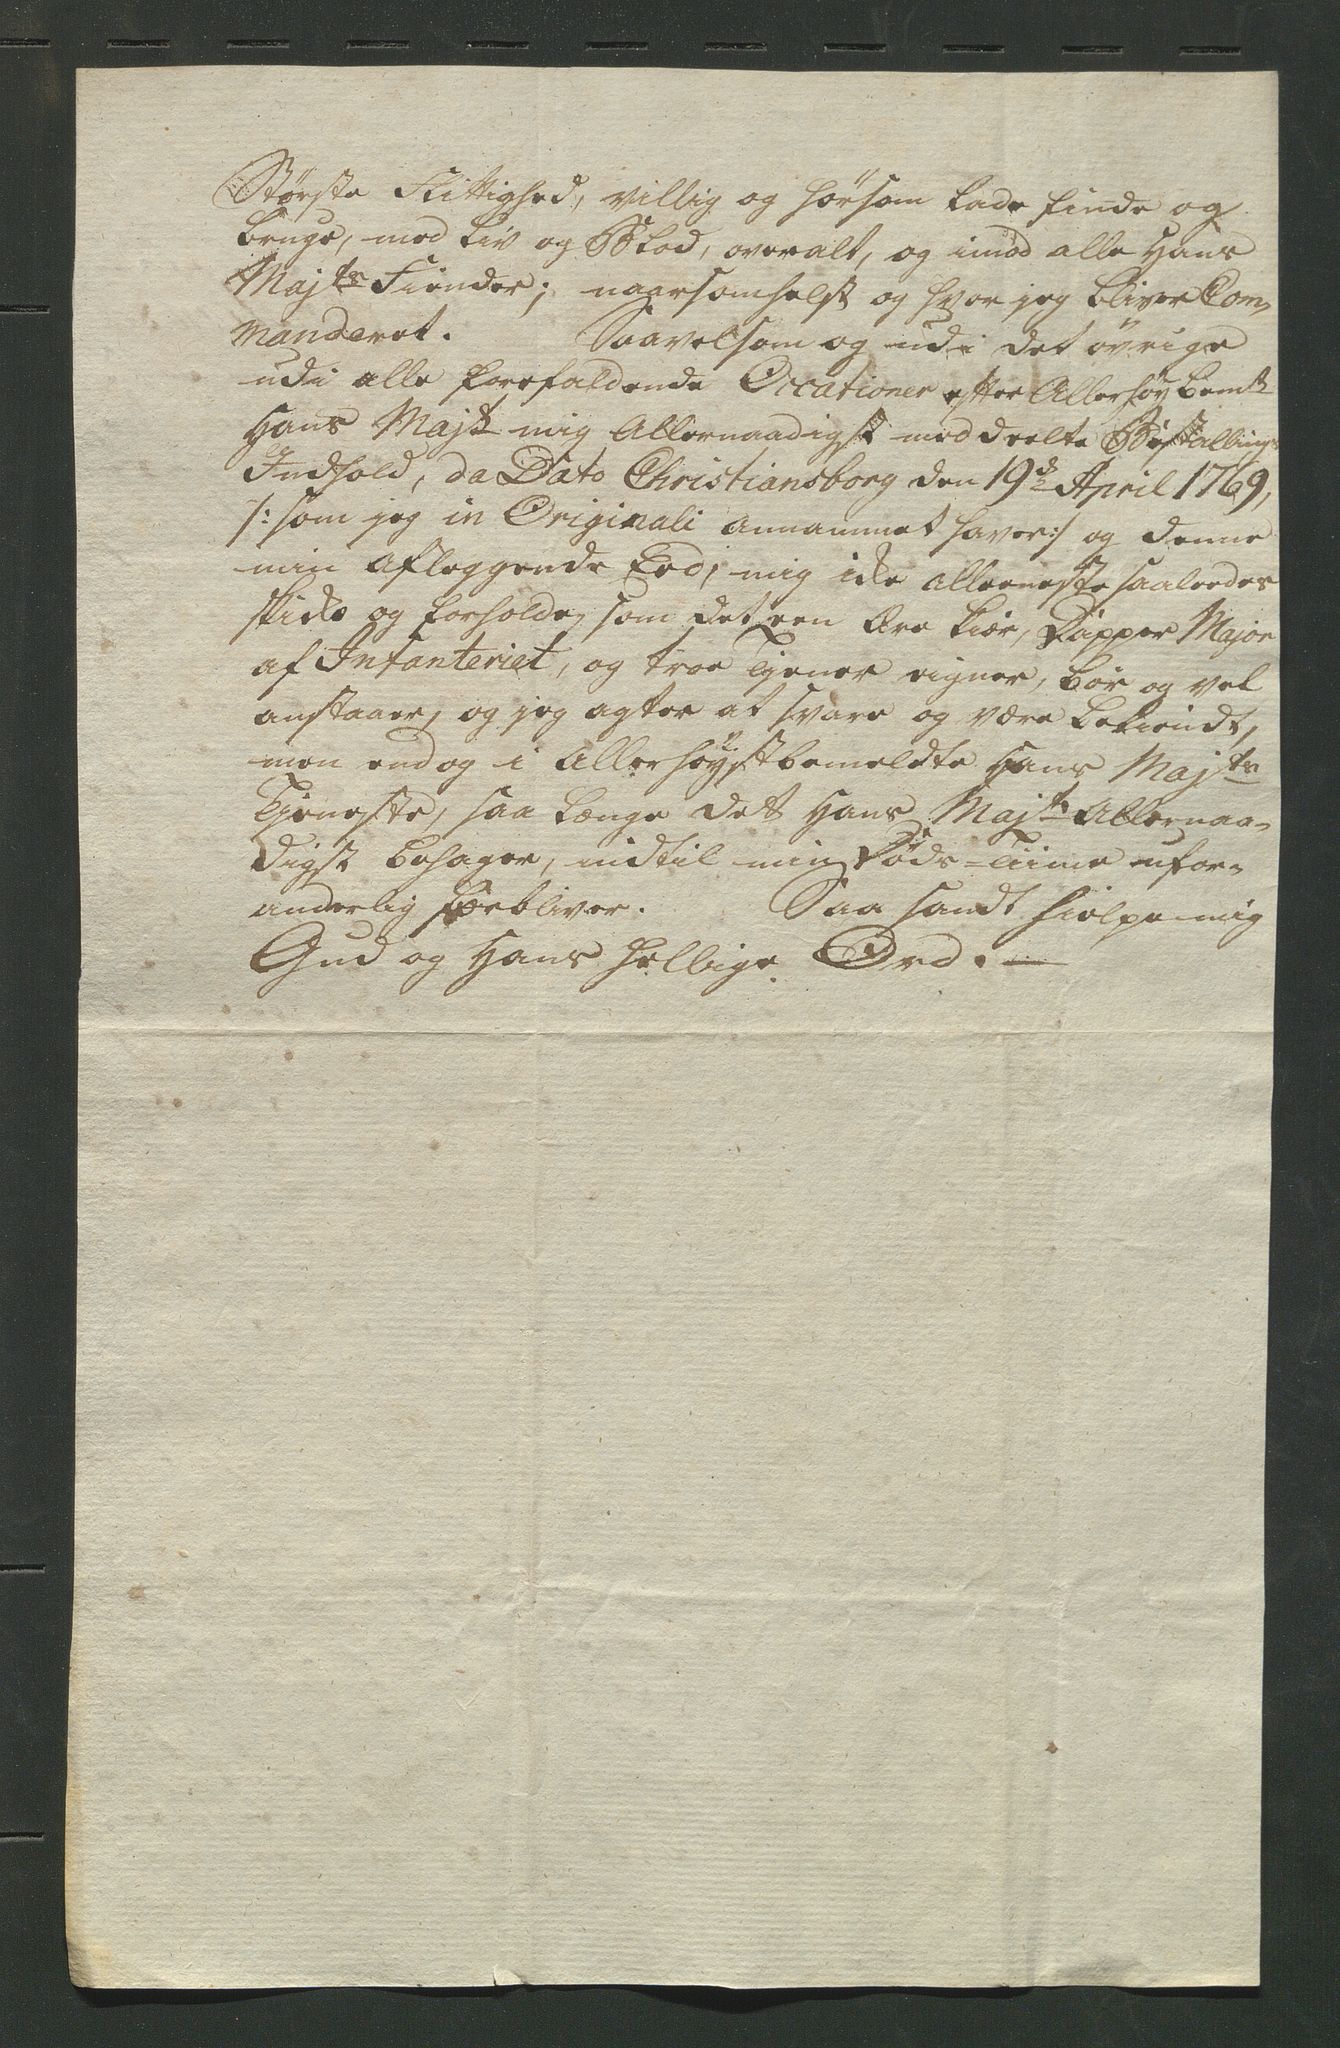 Største Flittighed, villig og hørsom lade finde og
bruge, med Liv og Blod, overalt, og imod alle Hans
Majts Fiender; naarsomhelst og hvor jeg bliver Com,
manderet. Saavelsom og udi det øvrige
udi alle forefaldende Occationer efter Allerhøybemte
Hans Majts mig Allernaadigst meddeelte Bestallings
Indhold, da Dato Christiansborg den 19de April 1769,
/: som jeg in Originali annammet haver :/ og denne
min aflæggende Eed, mig icke alleeneste saaleedes
skicke og forholde, som det een Ære kiær, Dapper Major
af Infanteriet, og troe Tjener eigner, bør og vel
anstaaer, og jeg agter at svare og være bekiendt,
men endog i Allerhøystbemeldte Hans Majts
Tjeneste, saa længe det Hans Majts Allernaa-
digst behager, indtil min Døds-Tiime ufor-
anderlig forbliver. Saa sandt hielpe mig
Gud og Hans hellige Ord. —